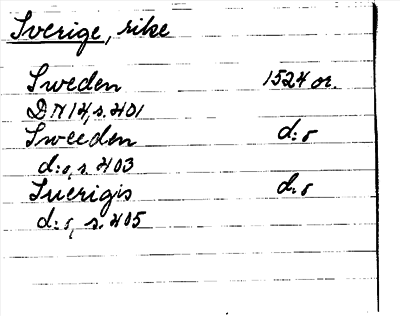 Sverige, rike
Sweden 1524 or.
DN 14, s. 401
Sweeden d:o
d:o, s. 403
Suerigis d:o
d:o, s. 405